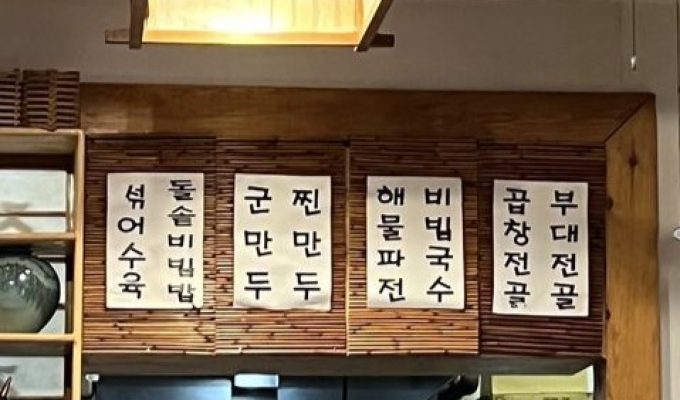 부대전골
곱창전골
비빔국수
해물파전
찐만두
군만두
돌솥비빔밥
섞어수육